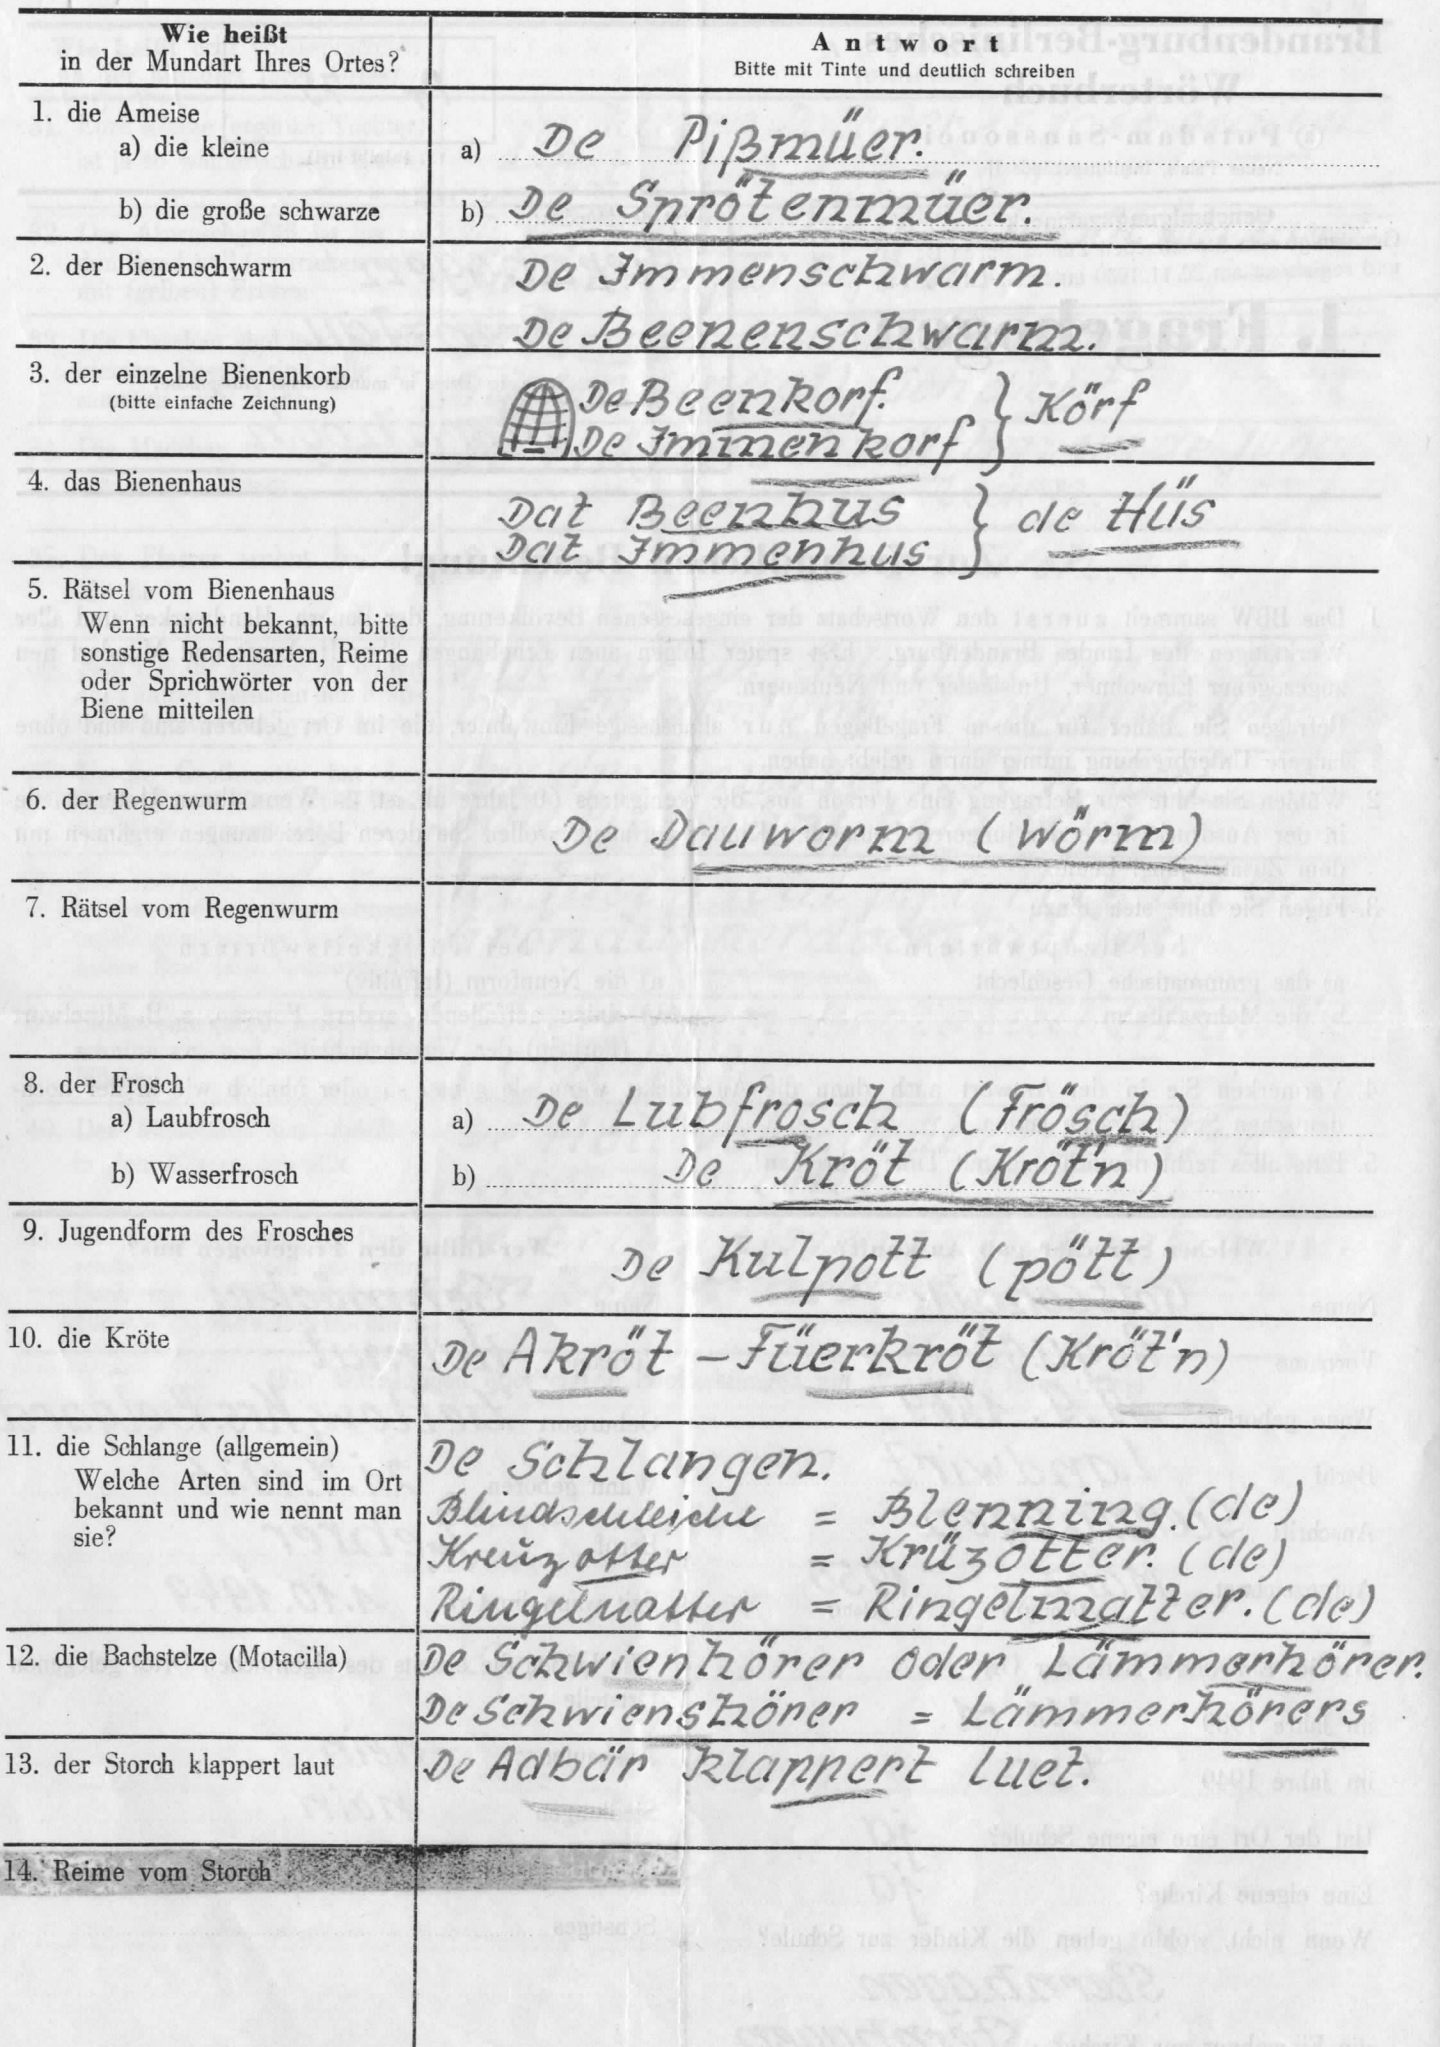 Wie heißt
in der Mundart Ihres Ortes?
Antwort
Bitte mit Tinte und deutlich schreiben
1. die Ameise
a) die kleine
a) De Pißmüer.
b) die große schwarze
b) De Sprötenmüer.
2. der Bienenschwarm
De Immenschwarm.
De Beenenschwarm.
3. der einzelne Bienenkorb
(bitte einfache Zeichnung)
De Beenkorf.
De Immenkorf } Körf
4. das Bienenhaus
Dat Beenhus
Dat Immenhus } de Hüs
5. Rätsel vom Bienenhaus
Wenn nicht bekannt, bitte
sonstige Redensarten, Reime
oder Sprichwörter von der
Biene mitteilen
6. der Regenwurm
De Dauworm (Wörm)
7. Rätsel vom Regenwurm
8. der Frosch
a) Laubfrosch
a) De Lubfrosch (Frösch)
b) Wasserfrosch
b) De Kröt (Kröt'n)
9. Jugendform des Frosches
De Kulpott (pött)
10. die Kröte
De Akröt – Füerkröt (Kröt'n)
11. die Schlange (allgemein)
Welche Arten sind im Ort
bekannt und wie nennt man
sie?
De Schlangen.
Blindschleiche = Blenning. (de)
Kreuzotter = Krüzotter. (de)
Ringelnatter = Ringelmatter. (de)
12. die Bachstelze (Motacilla)
De Schwienhörer oder Lämmerhörer.
De Schwienshörer = Lämmerhörers
13. der Storch klappert laut
De Adbär klappert luet.
14. Reime vom Storch